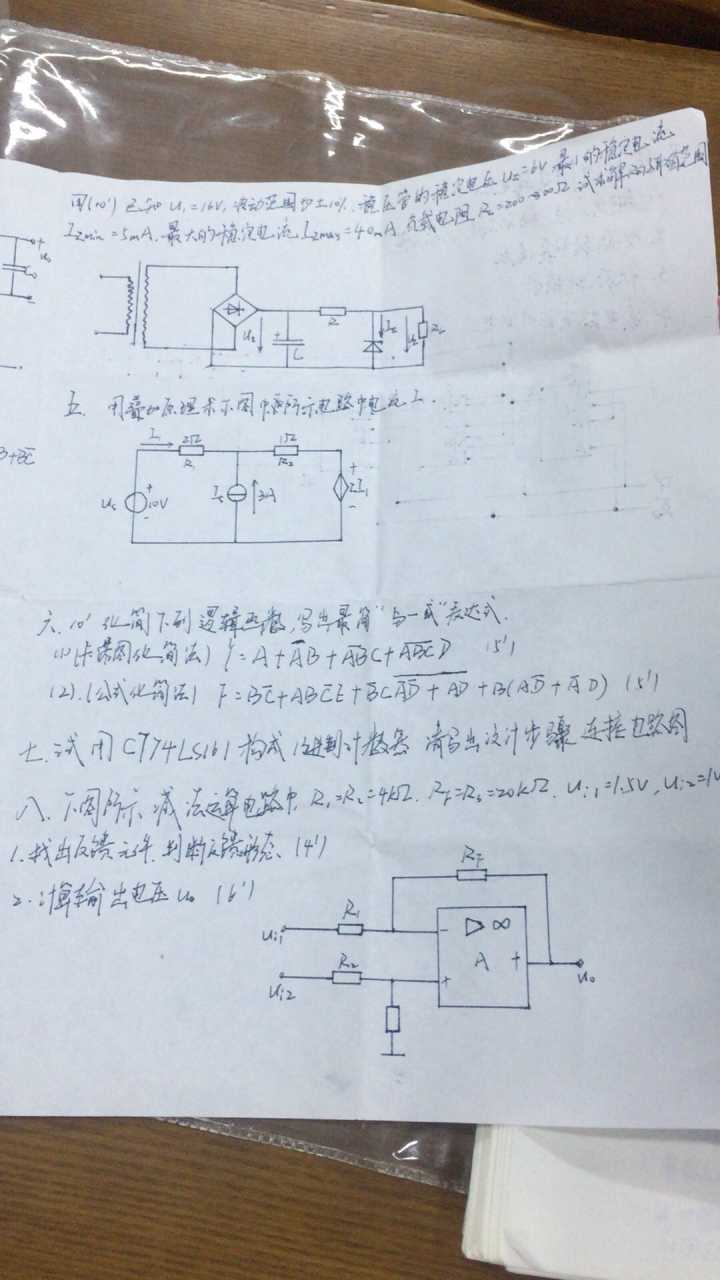 四(10') 已知 U₁=16V, 波动范围为±10%. 稳压管的稳定电压 Uz=6V 最小的稳定电流
Izmin=5mA, 最大的稳定电流 Izmax=40mA 负载电阻 RL=200~ Ω 试求解R的 范围
U₂ + C R Iz RL
五. 用叠加原理求下图 所示电路中电流 I.
I 2Ω 1Ω
R₁ R₂
Us + 10V - Is 3A + 2I₁ -
B+BC
六. 10' 化简下列逻辑函数, 写出最简"与—或"表达式.
(1) (卡诺图化简法) Y=A+A̅B+A̅B̅C+A̅B̅C̅D (5')
(2). (公式化简法) F=BC̅+ABCE+B̅C̅ A̅D̅+AD + B(AD̅+A̅D) (5')
七. 试用CT74LS161构成 进制计数器 请写出设计步骤 连接电路图
八. 下图所示减法运算电路中, R₁=R₂=4kΩ. RF=R₃=20kΩ. Ui1=1.5V, Ui2=1V
1. 找出反馈元件. 判断反馈形态. (4')
2. 计算输出电压 u₀ (6')
RF
Ui1 R₁ - ▷ ∞
A +
Ui2 R₂ + U₀